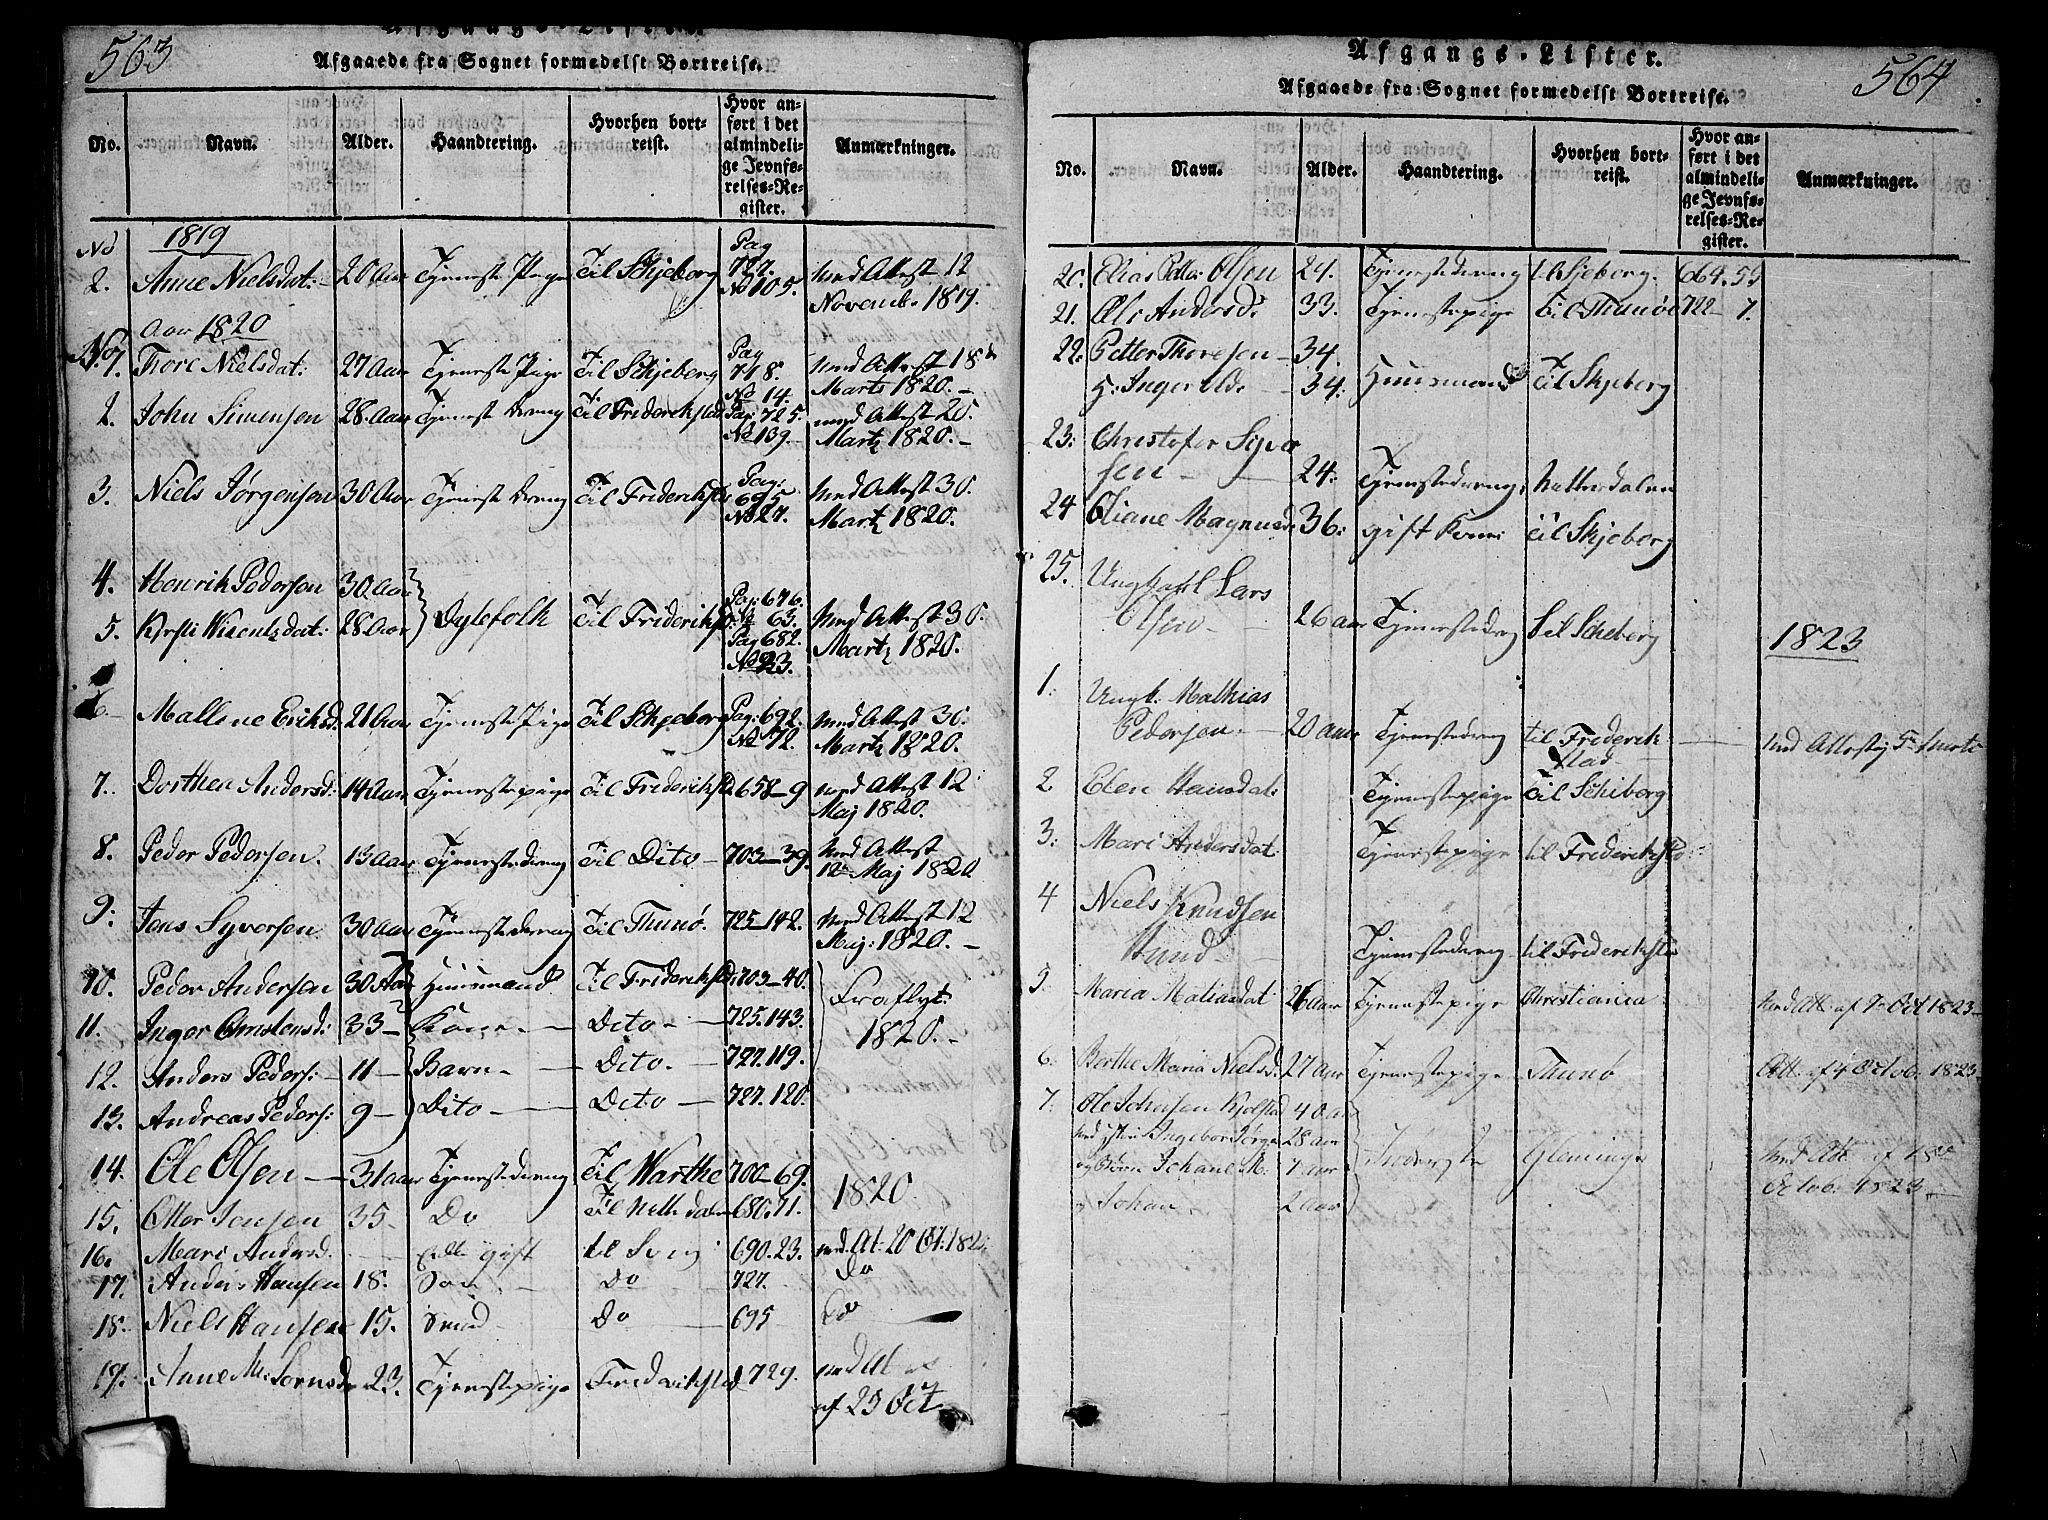 563
Afgangs-Lister.
Afgaaede fra Sognet formedelst Bortreise.
No. Navn. Alder. Haandtering. Hvorhen bortreist. Hvor anført i det almindelige Jevnførelses-Register. Anmærkninger.
No 1819
2. Anne Nielsdat: 20 Aar Tjeneste Pige Til Skjeberg Pag 727. No 105. med Attest 12 Novemb. 1819.
Aar 1820
No 1. Tore Nielsdat: 27 Aar Tjeneste Pige Til Skjeberg Pag 718. No 14. med Attest 18de Marts 1820.
2. John Simensen 28 Aar Tjeneste Dreng Til Frederikstad Pag: 725. No 139 med Attest 25. Martz 1820.
3. Niels Jørgensen 30 Aar Tjeneste Dreng Til Frederikst Pag: 695 No 27. Med Attest 30. Martz 1820.
4. Henrik Pedersen 30 Aar
5. Kirsti Vincentsdat: 28 Aar Dylefolk Til Frederikst Pag: 676. No 63. Pag 682. No 23. Med Attest 30. Martz 1820.
6. Mallene Eriksd: 21 Aar Tjeneste Pige Til Skjeberg Pag: 692. No 72. Med Attest 30. Martz 1820.
7. Dorthea Andersd: 14 Aar Tjenestepige Til Frederikst 658-9 med Attest 12 Maj 1820.
8. Peder Pedersen. 13 Aar Tjenestedreng Til Dito 703-39. Med Attest 12 Maj 1820
9: Jens Syversen 30 Aar Tjenestedreng Til Thunø. 725-142. Med Attest 12 Maj: 1820.
10. Peder Andersen 30 Aar Huusmand Til Frederikstd 703-40. Fraflyt: 1820.
11. Inger Christensd: 33 Kone Dito 725.143.
12. Anders Peders: 11 Barn Dito. 727.119.
13. Andreas Peders: 9 Dito Dito 727.120.
14. Ole Olsen 31 aar Tjenestedreng Til Warthe 700-69. 1820.
15. Otter Jensen 35 Do Til 680.71.
16. Mari Andersd. gift til 690.23. med At: 20 Oct: 182
17. Anders Hansen 18. Søn Do 727. Do
18. Niels Hansen 15. Do 695 Do
19. Anne M: 23. Tjenestepige Frederikstad 729. med At af 23 Oct
564
Afgangs-Lister.
Afgaaede fra Sognet formedelst Bortreise.
No. Navn. Alder. Haandtering. Hvorhen bortreist. Hvor anført i det almindelige Jevnførelses-Register. Anmærkninger.
20. Elias Petter Olsen 24. Tjenestedreng t. Skjeberg. 664.59
21. Ole Andersd. 33. Tjenestepige til Thunøe 722 7.
22. Petter Thoresen 34.
H: Inger Old. 34. Huusmand Til Skjeberg
23: Christofer Syver
sen 24. Tjenestedreng
24 Oliane Magnusd 36: gift Kone Til Skjeberg
25. Ungkarl Lars
Olsen 26 aar Tjenestedreng til Scheberg
1823
1. Ungk. Mathias
Pedersen 20 aar Tjenestedreng til Frederikstad med Attest 5te Marts
2 Elen Hansdat: Tjenestepige Til Schiberg
3. Mari Andersdat: Tjenestepige til Frederiksta
4 Niels Knudsen
Tjenestedreng til Frederiksta
5. Maria Matiasdat 26 aar Tjenestepige Christiania med Att: af 7 Oct 1823
6. Berthe Maria Nielsd: 27 aar Tjenestepige Thunø Att. af 4 Octob: 1823
7. Ole Johnsen Kjølstad 40 aar
med Ingebor Jørge 28 aar
og Børn Johane M. 7 aar Gleminge med Att af 18de Octob: 1823
og Johan 2 aar